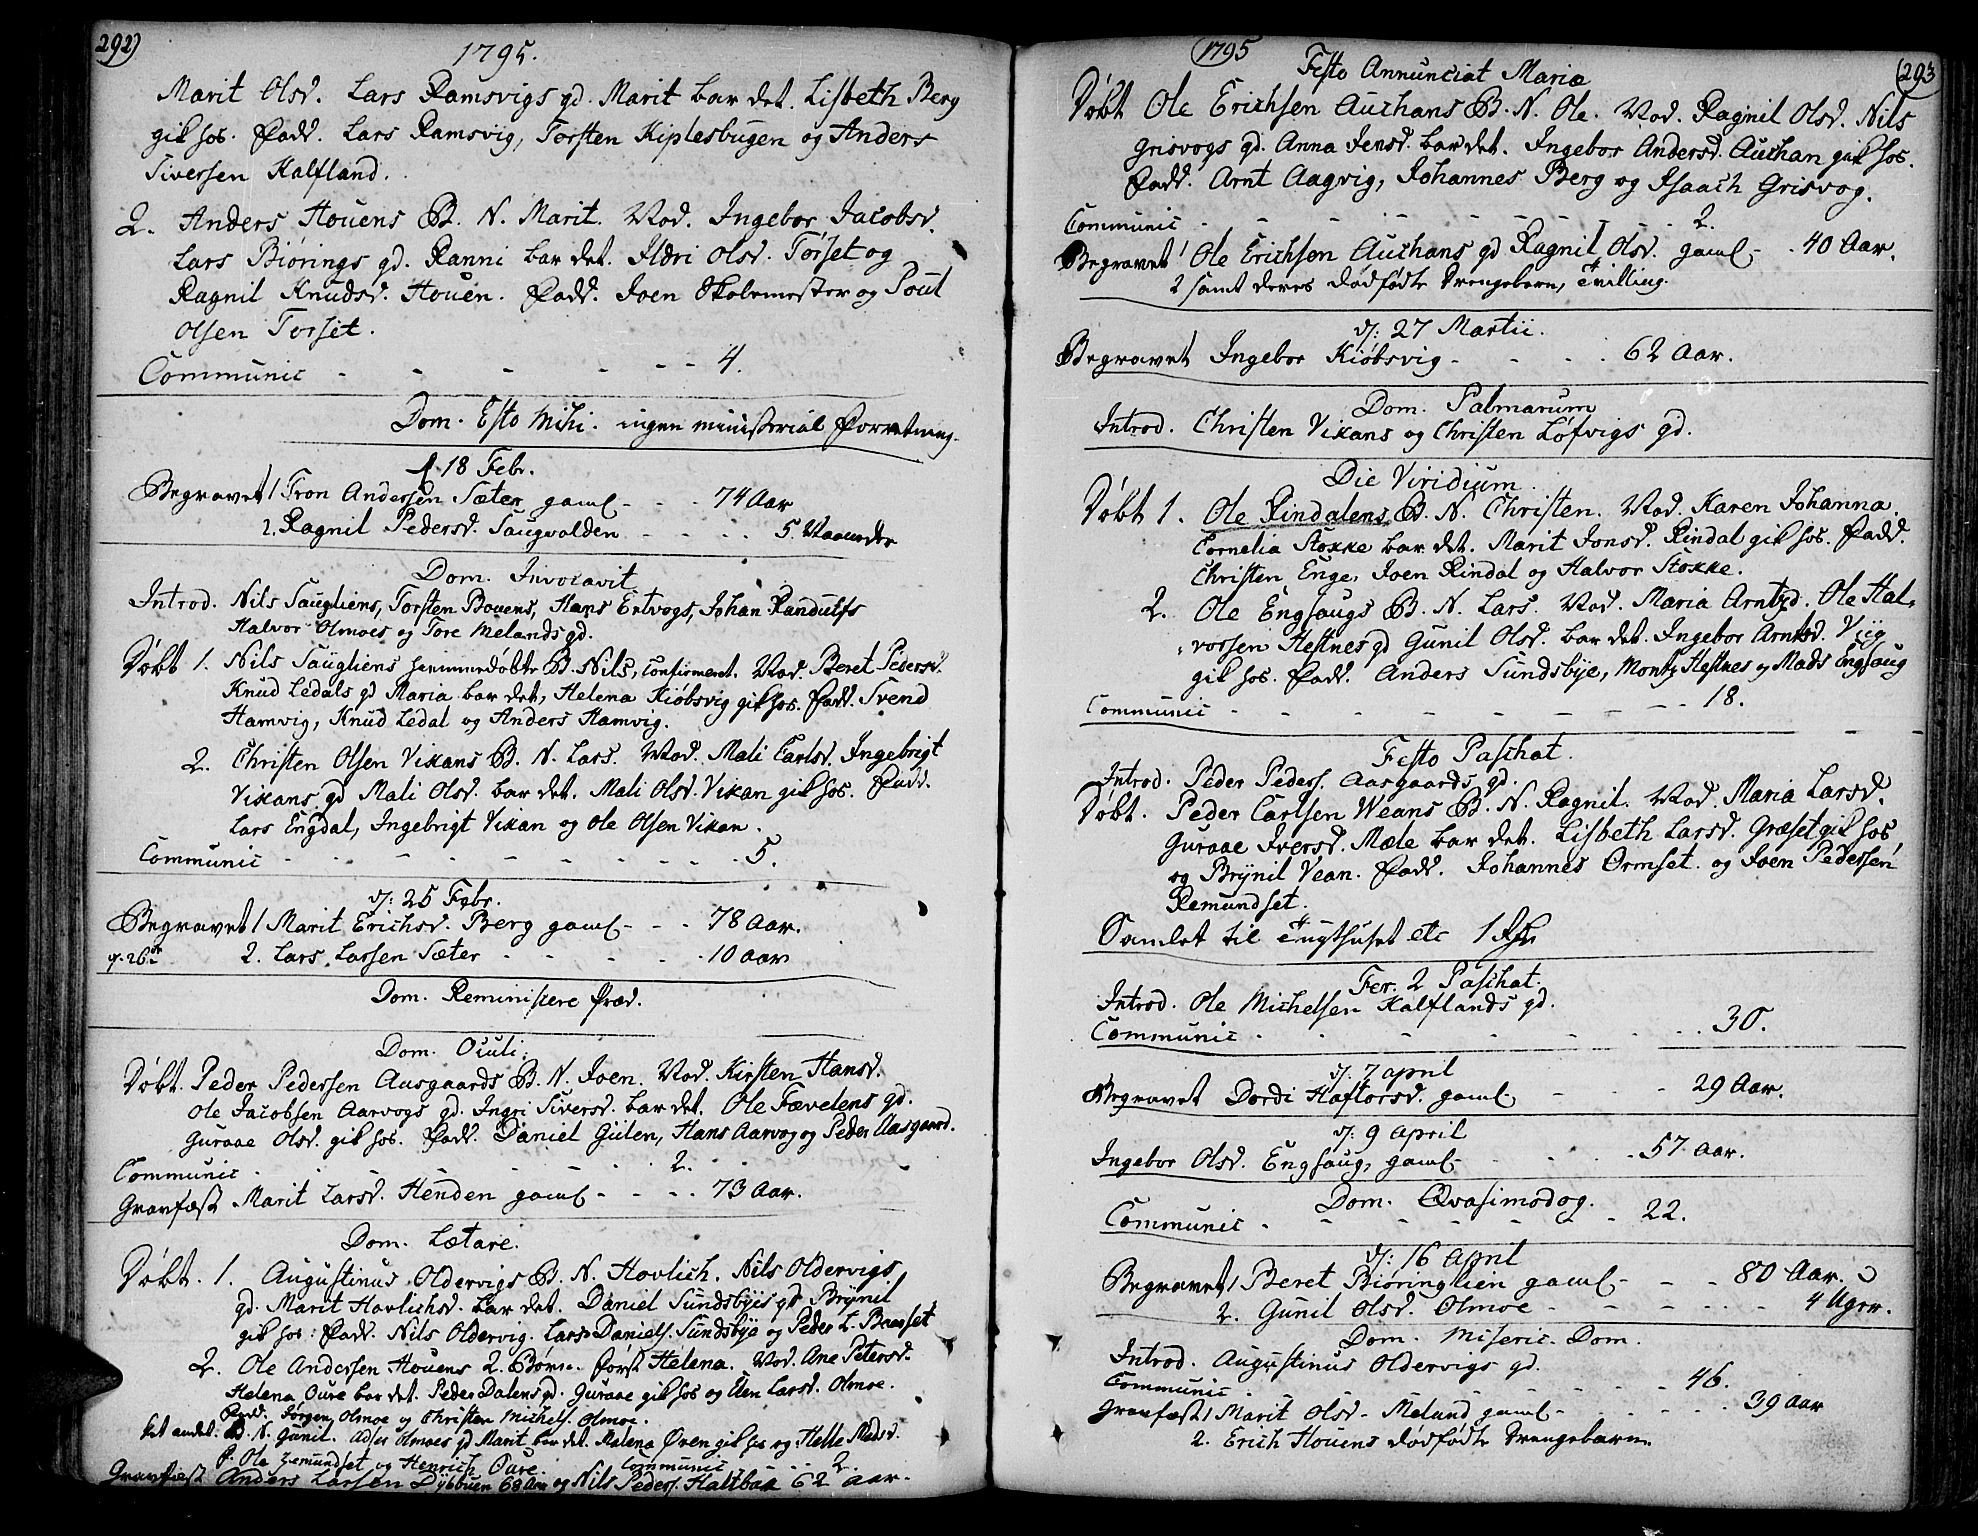 292)
1795.
Marit Olsd. Lars Ramsvigs gd. Marit bar det. Lisbeth Berg
gik hos. Fadd. Lars Ramsvig, Torsten Kiplesbugen og Anders
Siversen Kalfland.
2. Anders Houens B. N. Marit. Mod. Ingebor Jacobsd.
Lars Biørings gd. Ranni bar det. Ildri Olsd. Torset og
Ragnil Knudsd. Houen. Fadd. Joen Skolemester og Poul
Olsen Torset.
Communic - - - - - - 4.
Dom. Esto Mihi. ingen ministerial Forretning.
d. 18 Febr.
Begravet 1 Tron Andersen Sæter gaml - - - 74 Aar
2. Ragnil Pedersd. Saugvolden - - - - 5 Maaneder
Dom. Invocavit
Introd. Nils Saugliens, Torsten Bouens, Hans Ertvogs, Johan Randulfs
Halvor Olmoes og Tore Melands gd.
Døbt 1. Nils Saugliens hiemmedøbte B. Nils, confirmeret. Mod. Beret Pedersd.
Knud Ledals gd Maria bar det, Helena Kiøbsvig gik hos. Fadd. Svend
Hamvig, Knud Ledal og Anders Hamvig.
2. Christen Olsen Vikans B. N. Lars. Mod. Mali Carlsd. Ingebrigt
Vikans gd Mali Olsd. bar det. Mali Olsd. Vikan gik hos. Fadd.
Lars Engdal, Ingebrigt Vikan og Ole Olsen Vikan.
Communic - - - - - - - - 5.
d: 25 Febr.
Begravet 1 Marit Erichsd. Berg gaml - - - 78 Aar.
d. 26de 2. Lars Larsen Sæter - - - - - 10 Aar
Dom. Reminiscere Præd.
Dom. Oculi.
Døbt. Peder Pedersen Aasgaards B. N. Joen. Mod. Kirsten Hansd.
Ole Jacobsen Aarvogs gd. Ingri Siversd. bar det. Ole Fævelens gd.
Guraae Olsd. gik hos. Fadd. Daniel Gulen, Hans Aarvog og Peder Aasgaard.
Communic - - - - - - - 2.
Gravfæst Marit Larsd. Henden gaml - - - - 73 Aar.
Dom. Lætare.
Døbt. 1. Augustinus Oldervigs B. N. Hovlich. Nils Oldervigs
gd. Marit Hovlichsd. bar det. Daniel Sundsbyes gd Brynil
gik hos: Fadd. Nils Oldervig. Lars Daniels. Sundsbye og Peder L.
2. Ole Andersen Houens 2. Børn. først Helena. Mod. Ane Petersd.
Helena Oure bar det. Peder Dalens gd. Guraae gik hos og Elen Larsd. Olmoe.
Fadd. Jørgen Olmoe og Christen Michels. Olmoe.
det andet. B. N. Gunil. Olmoes gd Marit bar det. Malena Øren gik hos og Helle Madsd.
F. Ole Remundset og Henrich Oure. Communic - - - 2.
Gravfæst Anders Larsen Dybbuen 68 Aar og Nils Peders. Haltbak 62 Aar.
1795
293
Festo Annunciat Mariæ
Døbt Ole Erichsen Auchans B. N. Ole. Mod. Ragnil Olsd. Nils
Grisvogs gd. Anna Jensd. bar det. Ingebor Andersd. Auchan gik hos.
Fadd. Arnt Aagvig, Johannes Berg og Isaach Grisvog.
Communic - - - - - - - - 2.
Begravet 1 Ole Erichsen Auchans gd Ragnil Olsd. gaml - - 40 Aar.
2 samt deres dødfødte Drengebarn, Tvilling.
d: 27 Martii.
Begravet Ingebor Kiøbsvig - - - - 62 Aar.
Dom. Palmarum
Introd. Christen Vikans og Christen Løfvigs gd.
Die Viridium.
Døbt 1. Ole Rindalens B. N. Christen. Mod. Karen Johanna.
Cornelia Stokke bar det. Marit Jonsd. Rindal gik hos. Fadd.
Christen Enge, Joen Rindal og Halvor Stokke.
2. Ole Engsaugs B. N. Lars. Mod. Maria Arntzd. Ole Hal-
vorsen Hestnes gd Gunil Olsd. bar det. Ingebor Arntsd. Viig
gik hos. Fadd. Anders Sundsbye, Montz Hestnes og Mads Engsaug
Communic - - - - - - - - 18.
Festo Paschat.
Introd. Peder Peders. Aasgaards gd.
Døbt. Peder Carlsen Weans B. N. Ragnil. Mod. Maria Larsd.
Guraae Iversd. Mæle bar det. Lisbeth Larsd. Græset gik hos
og Brynil Vean. Fadd. Johannes Ormset. og Joen Pedersen
Remundset.
Samlet til Tugthuset etc 1 Rd
Fer. 2 Paschat.
Introd. Ole Michelsen Kalflands gd.
Communic - - - - - - 30.
d. 7 april
Begravet Dordi Haftorsd. gaml - - - 29 Aar.
d: 9 April
Ingebor Olsd. Engsaug, gaml - - - - 57 Aar.
Dom. Qvasimodog.
Communic - - - - - - 22.
d: 16 April
Begravet 1 Beret Biøringlien gaml - - - 80 Aar.
2. Gunil Olsd. Olmoe - - - - - 4 Uger.
Dom. Miseric. Dom.
Introd. Augustinus Oldervigs gd.
Communic - - - - - - - 46.
Gravfæst 1 Marit Olsd. Meland gaml - - - - - 39 Aar
2. Erich Houens dødfødte Drengebarn.